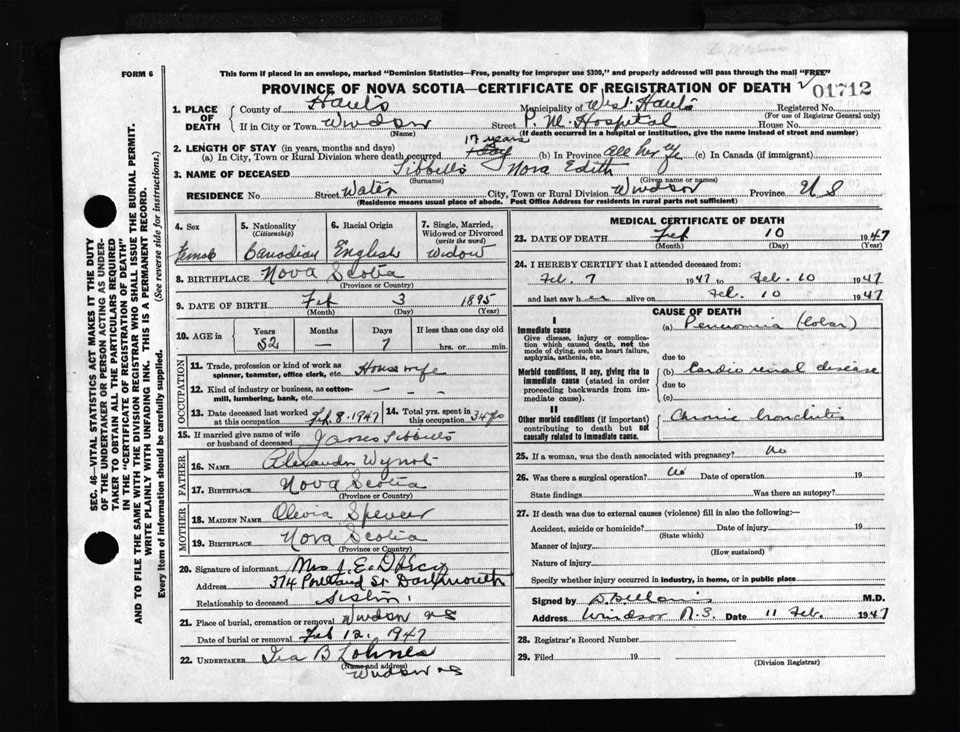 FORM 6
This form if placed in an envelope, marked "Dominion Statistics—Free, penalty for improper use $300," and properly addressed will pass through the mail "FREE"
PROVINCE OF NOVA SCOTIA—CERTIFICATE OF REGISTRATION OF DEATH
01712
1. PLACE OF DEATH
County of Hants
Municipality of West Hants
Registered No.
(For use of Registrar General only)
If in City or Town Windsor
(Name)
Street P. M. Hospital House No.
(If death occurred in a hospital or institution, give the name instead of street and number)
2. LENGTH OF STAY (in years, months and days)
17 years
(a) In City, Town or Rural Division where death occurred
(b) In Province All her life (c) In Canada (if immigrant)
3. NAME OF DECEASED Tibbetts Nora Edith
(Surname) (Given name or names)
RESIDENCE No. Street Water City, Town or Rural Division Windsor Province N S
(Residence means usual place of abode. Post Office Address for residents in rural parts not sufficient)
4. Sex
Female
5. Nationality
(Citizenship)
Canadian
6. Racial Origin
English
7. Single, Married,
Widowed or Divorced
(write the word)
Widow
8. BIRTHPLACE Nova Scotia
(Province or Country)
9. DATE OF BIRTH Feb 3 1895
(Month) (Day) (Year)
10. AGE in
Years Months Days If less than one day old
52 — 7 hrs. or min.
OCCUPATION
11. Trade, profession or kind of work as
spinner, teamster, office clerk, etc. House wife
12. Kind of industry or business, as cotton-
mill, lumbering, bank, etc. —
13. Date deceased last worked
at this occupation Feb. 8. 1947
14. Total yrs. spent in
this occupation
15. If married give name of wife
or husband of deceased James Tibbetts
FATHER
16. NAME Alexander Wynot
17. BIRTHPLACE Nova Scotia
(Province or Country)
MOTHER
18. MAIDEN NAME Olevia Spencer
19. BIRTHPLACE Nova Scotia
(Province or Country)
20. Signature of informant Mrs J. E. D'Arcy
Address 374 Portland St Dartmouth
Relationship to deceased Sister
21. Place of burial, cremation or removal Windsor NS
Date of burial or removal Feb 12, 1947
22. UNDERTAKER Ira B Lohnes
(Name and address)
Windsor NS
MEDICAL CERTIFICATE OF DEATH
23. DATE OF DEATH Feb 10 1947
(Month) (Day) (Year)
24. I HEREBY CERTIFY that I attended deceased from:
Feb. 7 1947 to Feb. 10 1947
and last saw her alive on Feb. 10 1947
CAUSE OF DEATH
I
Immediate cause
Give disease, injury or complica-
tion which caused death, not the
mode of dying, such as heart failure,
asphyxia, asthenia, etc.
(a) Pneumonia (lobar)
due to
Morbid conditions, if any, giving rise to
immediate cause (stated in order
proceeding backwards from im-
mediate cause).
(b) Cardio renal disease
due to
(c)
II
Other morbid conditions (if important)
contributing to death but not
causally related to immediate cause.
Chronic bronchitis
25. If a woman, was the death associated with pregnancy? No
26. Was there a surgical operation? No Date of operation 19
State findings Was there an autopsy?
27. If death was due to external causes (violence) fill in also the following:—
Accident, suicide or homicide? Date of injury 19
(State which)
Manner of injury
(How sustained)
Nature of injury
Specify whether injury occurred in industry, in home, or in public place
Signed by M.D.
Address Windsor N.S. Date 11 Feb. 1947
28. Registrar's Record Number
29. Filed 19
(Division Registrar)
SEC. 46—VITAL STATISTICS ACT MAKES IT THE DUTY
OF THE UNDERTAKER OR PERSON ACTING AS UNDER-
TAKER TO OBTAIN ALL THE PARTICULARS REQUIRED
IN THE "CERTIFICATE OF REGISTRATION OF DEATH"
AND TO FILE THE SAME WITH THE DIVISION REGISTRAR WHO SHALL ISSUE THE BURIAL PERMIT.
WRITE PLAINLY WITH UNFADING INK. THIS IS A PERMANENT RECORD.
Every item of information should be carefully supplied. (See reverse side for instructions.)